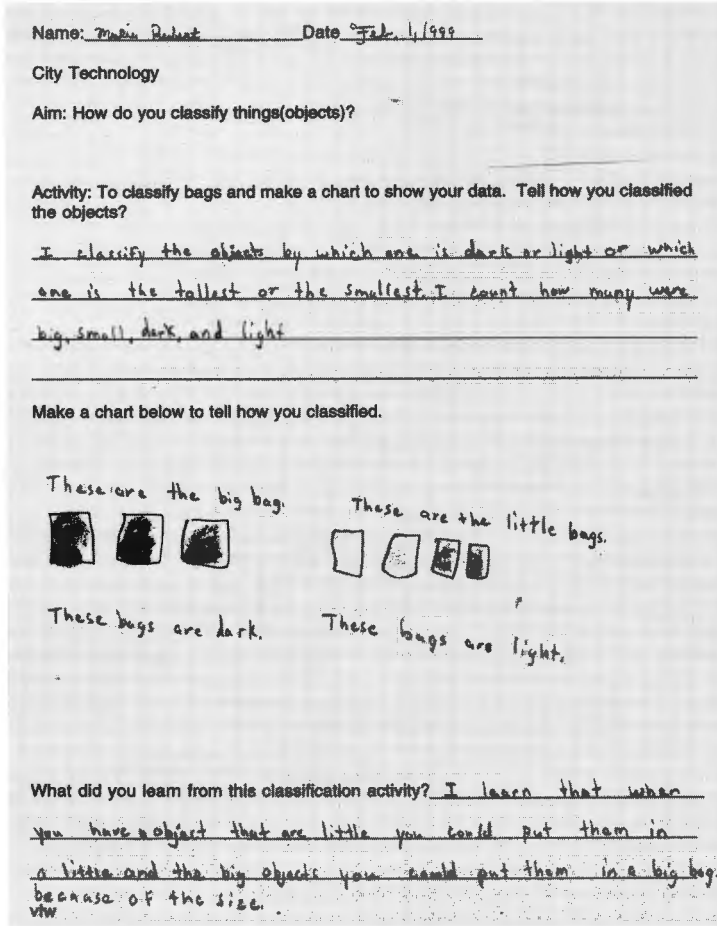 Name: Date Feb. 1, 1999
City Technology
Aim: How do you classify things(objects)?
Activity: To classify bags and make a chart to show your data. Tell how you classified
the objects?
I classify the objects by which one is dark or light or which
one is the tallest or the smallest. I count how many were
big, small, dark, and light
Make a chart below to tell how you classified.
These are the big bag.
These are the little bags.
These bags are dark.
These bags are light.
What did you learn from this classification activity? I learn that when
you have a object that are little you could put them in
a little and the big objects you could put them in a big bag.
because of the size.
vfw